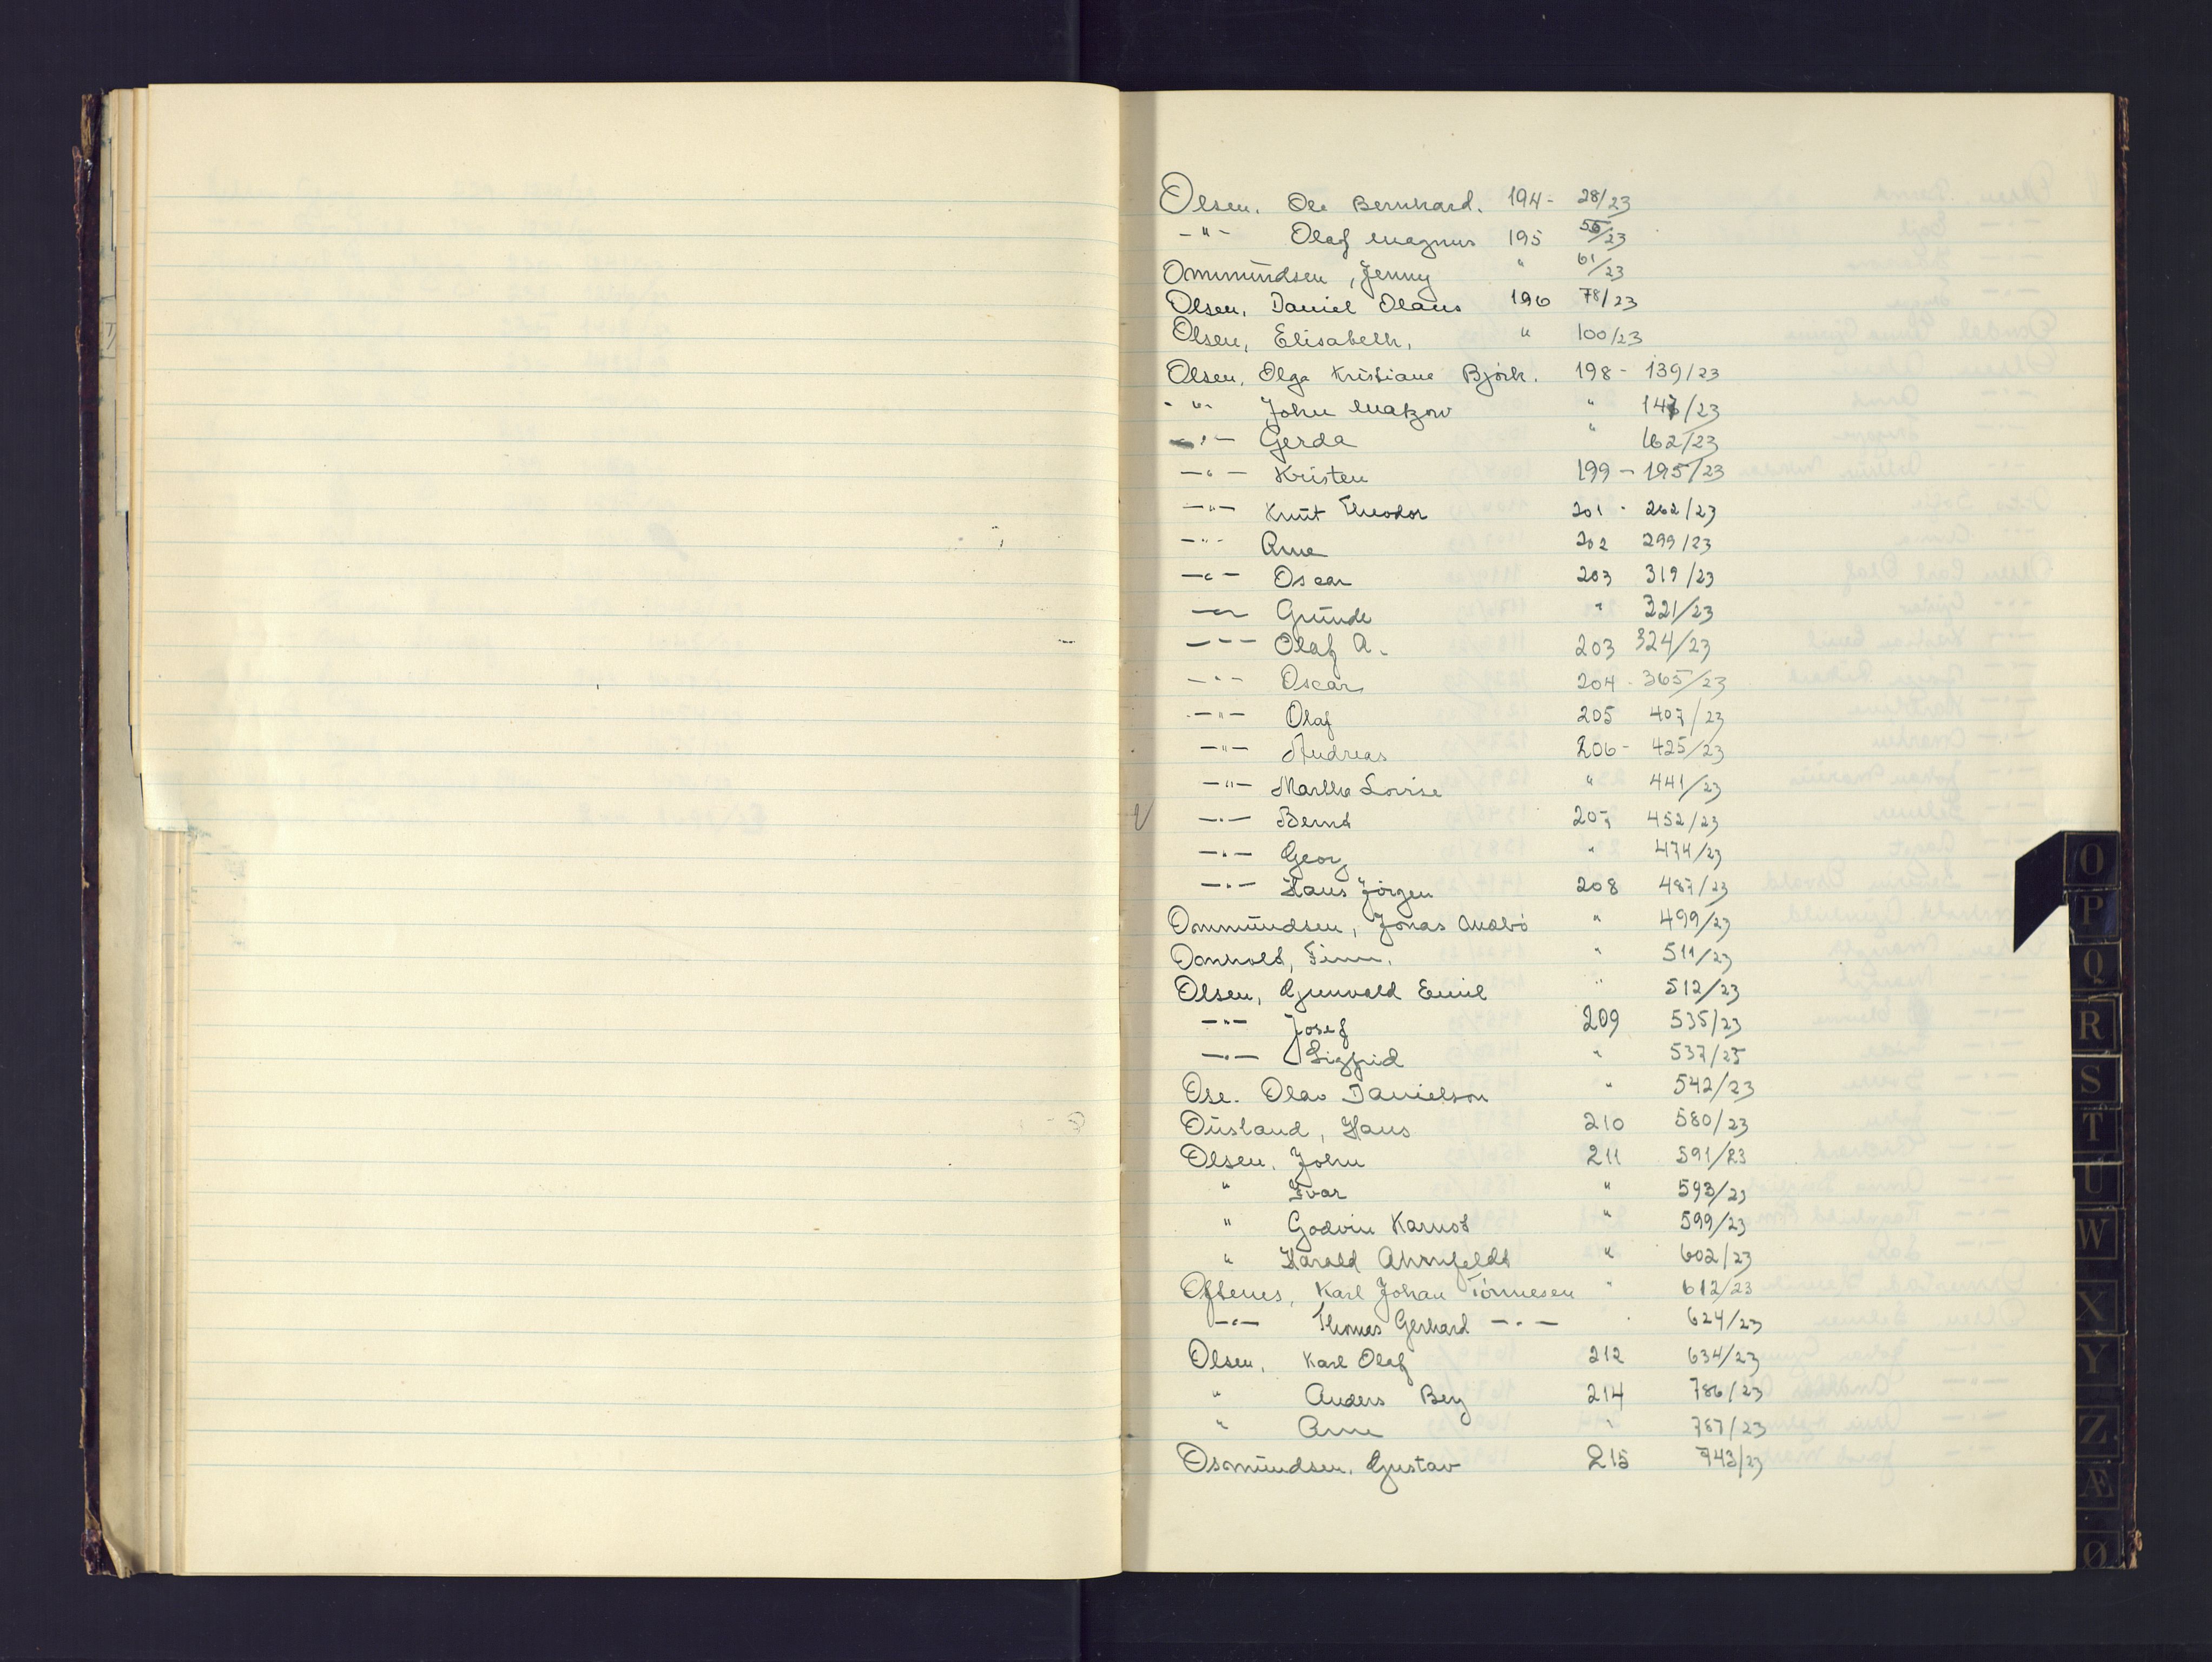 Olsen, Ole Bernhard. 194 - 28/23
-"- Olaf Magnus 195 55/23
Ommundsen, Jenny " 61/23
Olsen, Daniel Olaus 196 78/23
Olsen, Elisabeth, " 100/23
Olsen, Olga Kristiane Björk. 198 - 139/23
-"- John " 147/23
-"- Gerda " 162/23
-"- Kristen 199 - 195/23
-"- Knut Theodor 201 - 262/23
-"- Arne 202 299/23
-"- Oscar 203 319/23
-"- Gunde " 321/23
-"- Olaf A. 203 324/23
-"- Oscar 204 - 365/23
-"- Olaf 205 407/23
-"- Andreas 206 - 425/23
-"- Marthe Lovise " 441/23
-"- Bernt 207 452/23
-"- Georg " 474/23
-"- Hans Jörgen 208 487/23
Ommundsen, Jonas " 499/23
Omholt, Finn, " 511/23
Olsen, Gunvald Emil " 512/23
-"- Josef 209 535/23
-"- Sigfrid " 537/23
Ose. Olav Danielson " 542/23
Ousland, Hans 210 580/23
Olsen, John 211 591/23
" Ivar " 593/23
" Godvin Karnot " 599/23
" Harald Ahrnfeldt " 602/23
Oftenes, Karl Johan Tönnesen " 612/23
-"- Thomas Gerhard -"- " 624/23
Olsen, Karl Olaf 212 634/23
" Anders Berg 214 786/23
" Arne " 787/23
Osmundsen, Gustav 215 743/23
O
P
Q
R
S
T
U
W
X
Y
Z
Æ
Ø